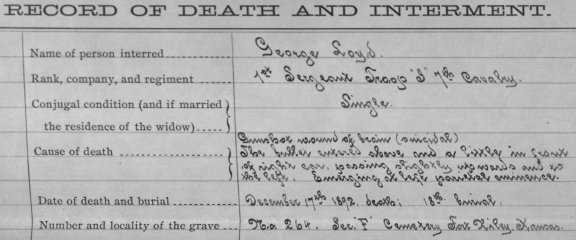 RECORD OF DEATH AND INTERMENT.
Name of person interred George Loyd.
Rank, company, and regiment 1st Sergeant Troop "I" 7th Cavalry.
Conjugal condition (and if married Single.
the residence of the widow)
Gunshot wound of brain (suicidal)
Cause of death The bullet entered above and a little in front
of right ear, passing slightly upwards and to
the left. Emerging at left parietal eminence.
Date of death and burial December 17th 1892, death; 18th burial.
Number and locality of the grave No. 264. Sec. F Cemetery Fort Riley, Kansas.